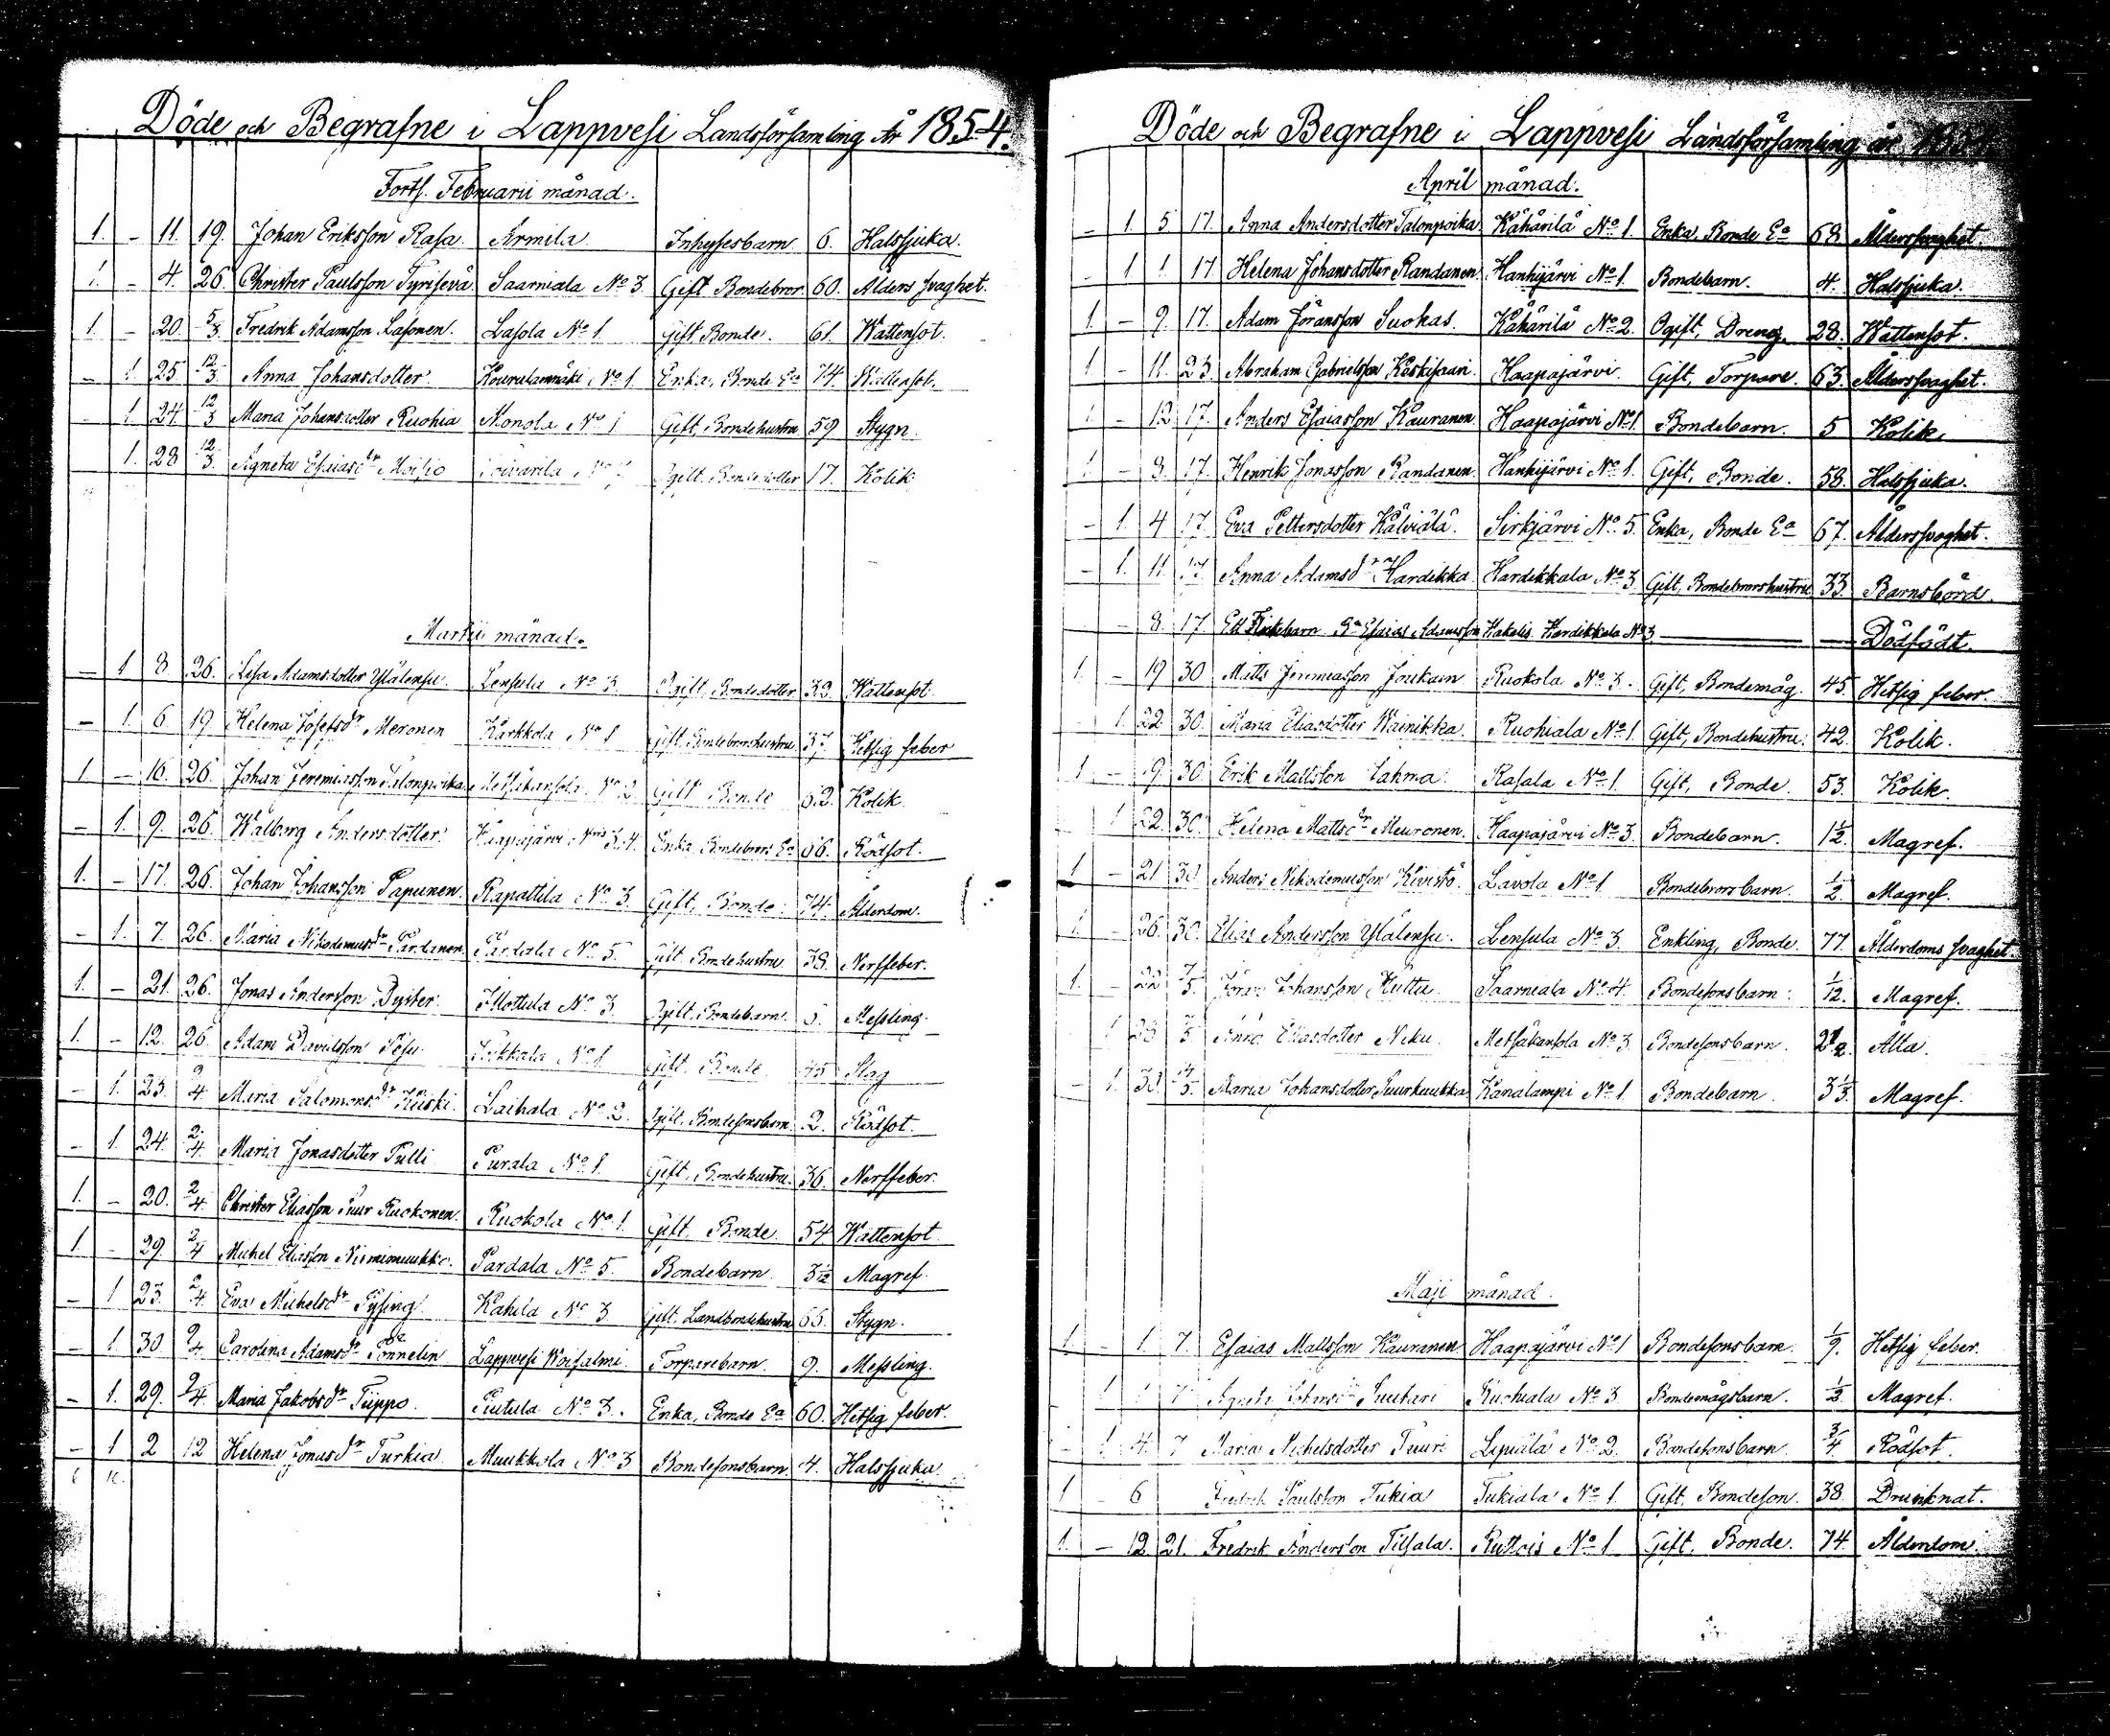 Döde och Begrafne i Lappvesi Landsförsamling År 1854.
Forts. Februarii månad.
1. - 11. 19. Johan Eriksson Rasa. Armila. Inhysesbarn 6. Halssjuka.
1. - 4. 26. Christer Paulsson Tyrisevä Saarniala No 3 Gift Bondebror 60. Ålders svaghet.
1. - 20. 5/3. Fredrik Adamsson Lasonen. Lasola No 1 Gift Bonde. 61. Wattensot.
- 1. 25 12/3. Anna Johansdotter. No 1 Enka, Bonde Ea 74. Wattensot.
- 1. 24. 12/3 Maria Johansdotter Ruohia Monola No 1 Gift, Bondehustru 59 Stygn.
1. 28 12/3. Agneta Esaiasdr Moisio No Ogift Bondedotter 17. Kolik
Martii månad.
- 1 8 26. Lisa Adamsdotter Ylätensu. Lensula No 3. Ogift, Bondedotter 39. Wattensot.
- 1. 6. 19 Helena Josefsdr Meronen Kärkkola No 1 Gift, Bondebrorshustru 37. Hetsig feber
1. - 16. 26. Johan Jeremiasson Talonpoika Metsäkansola No 2 Gift Bonde 62. Kolik
- 1. 9. 26. Walborg Andersdotter Haapajärvi Nris 3,4. Enka Bondebrors Ea 66. Rödsot.
1. - 17. 26. Johan Johansson Papunen Rapattila No 3 Gift, Bonde 74. Ålderdom.
- 1. 7. 26. Maria Nikodemusdr Pardanen. Pardala No 5. Gift Bondehustru 38. Nerffeber.
1. - 21. 26. Jonas Andersson Dyster. Illottula No 3. Ogift, Bondebarn. Messling.
1. - 12. 26. Adam Davidsson Pesu. No 1 Gift Bonde 45 Slag
- 1. 23. 2/4 Maria Salomonsdr Kiiski. Laihala No 2. Ogift, Bondesonsbarn 2. Rödsot.
- 1. 24. 2/4. Maria Jonasdotter Pulli Purala No 1 Gift, Bondehustru. 36. Nerffeber.
1. - 20. 2/4. Christer Eliasson Suur Ruokonen. Ruokola No 1. Gift, Bonde. 54 Wattensot.
1. - 29. 2/4 Michel Eliasson Niiniimuukko. Pardala No 5. Bondebarn. 3 1/12 Magref.
- 1 23. 2/4. Eva Michelsdr Pysing Kahila No 3 Gift, Landbondehustru 66. Stygn.
- 1. 30. 2/4 Carolina Adamsdr Ponnelin Lappvesi Woisalmi Torparebarn. 9. Messling.
- 1. 29. 2/4. Maria Jakobsdr Tiippo. Piutula No 3. Enka, Bonde Ea 60. Hetsig feber.
- 1 2 12 Helena Jonasdr Turkia Muukkola No 3 Bondesonsbarn 4. Halssjuka.
Döde och Begrafne i Lappvesi Landsförsamling år 1854
April månad.
- 1. 5 17. Anna Andersdotter Talonpoika Kähärilä No 1. Enka, Bonde Ea 68 Ålderssvaghet.
- 1 1. 17 Helena Johansdotter Randanen Hanhijärvi No 1. Bondebarn. 4. Halssjuka.
1. - 9. 17. Adam Göransson Suokas. Kähärilä No 2 Ogift, Dreng. 28. Wattensot.
1 - 11. 23. Abraham Gabrielsson Koskisaari Haapajärvi. Gift, Torpare. 63. Ålderssvaghet.
1 - 12 17. Anders Esaiasson Kauranen Haapajärvi No 1. Bondebarn. 5 Kolik.
1 - 8. 17. Henrik Jonasson Randanen. Hanhijärvi No 1. Gift, Bonde. 58. Halssjuka.
- 1. 4 17. Eva Pettersdotter Kälviälä. Sirkjärvi No 5. Enka, Bonde Ea 67. Ålderssvaghet.
- 1. 11. 17. Anna Adamsdr Hardikka. Hardikkala No 3. Gift, Bondebrorshustru 33. Barnsbörd.
- 8. 17. Ett Flickebarn Ba Esaias Adamsson Hakalis Hardikkala No 3 Dödfödt.
1. - 19 30 Matts Jeremiasson Joukain Ruokola No 3. Gift, Bondemåg. 45. Hetsig feber.
1. 22. 30. Maria Eliasdotter Wainikka. Ruohiala No 1. Gift, Bondehustru. 42. Kolik.
1 - 19. 30. Erik Mattsson Lahma. Rasala No 1. Gift, Bonde. 53. Kolik.
1 22. 30. Helena Mattsdr Meuronen. Haapajärvi No 3. Bondebarn. 1 1/2. Magref.
1 - 21 30 Anders Nikodemusson Kivistö. Lavola No 1. Bondebrorsbarn. 1/2. Magref.
1. - 26. 30. Elias Andersson Ylätensu. Lensula No 3. Enkling, Bonde. 77. Ålderdoms svaghet.
1. - 22 7/5. Johansson Huttu. Saarniala No 4. Bondesonsbarn. 1/12. Magref.
1 28 7/5 Anna Eliasdotter Niku Metsäkansola No 3. Bondesonsbarn. 2 1/2. Ålta.
- 1. 30. 14/5. Maria Johansdotter Suurkuukka Kanalampi No 1. Bondebarn. 3 1/3. Magref.
Maji månad.
1 - 1. 7. Esaias Mattsson Kauranen Haapajärvi No 1 Bondesonsbarn. 1/9. Hetsig feber.
1 1 7 Agneta Suutari Ruohiala No 3 Bondemågsbarn. 1/2. Magref.
1 4. 7 Maria Michelsdotter Tuuri Lipiälä No 2. Bondesonsbarn. 3/4 Rödsot.
1 - 6 Fredrik Paulsson Tukia Tukiala No 1. Gift, Bondeson. 38. Drunknat.
1. - 12. 21. Fredrik Andersson Tilsala. Ruttois No 1 Gift, Bonde. 74. Ålderdom.